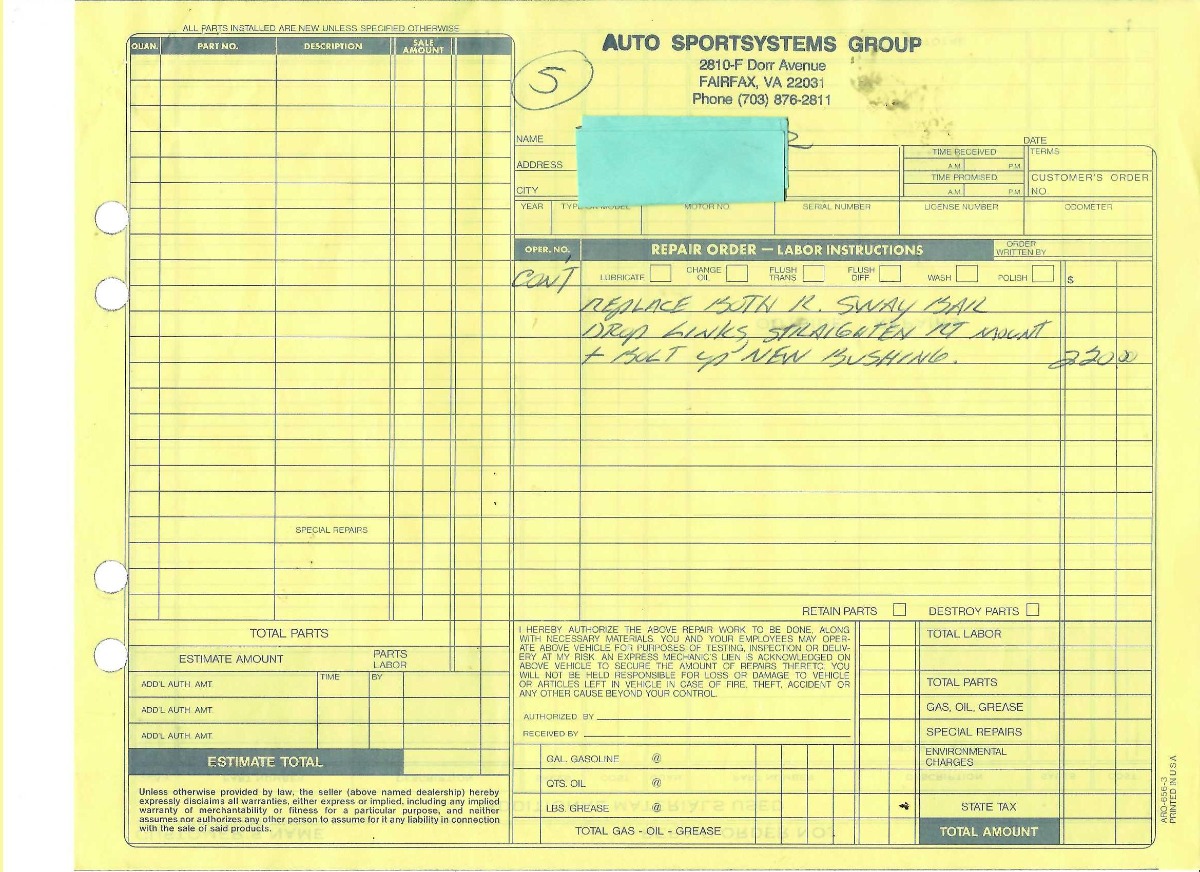 ALL PARTS INSTALLED ARE NEW UNLESS SPECIFIED OTHERWISE
QUAN. PART NO. DESCRIPTION SALE AMOUNT
5
AUTO SPORTSYSTEMS GROUP
2810-F Dorr Avenue
FAIRFAX, VA 22031
Phone (703) 876-2811
NAME DATE
ADDRESS TIME RECEIVED A.M. P.M. TERMS
CITY TIME PROMISED A.M. P.M. CUSTOMER'S ORDER NO.
YEAR TYPE OR MODEL MOTOR NO. SERIAL NUMBER LICENSE NUMBER ODOMETER
OPER. NO. REPAIR ORDER — LABOR INSTRUCTIONS ORDER WRITTEN BY
CON'T LUBRICATE CHANGE OIL FLUSH TRANS FLUSH DIFF WASH POLISH $
REPLACE BOTH R. SWAY BAR
DROP LINKS, STRAIGHTEN RT MOUNT
+ BOLT UP NEW BUSHING. 220.00
SPECIAL REPAIRS
RETAIN PARTS DESTROY PARTS
TOTAL PARTS
ESTIMATE AMOUNT PARTS LABOR
TIME BY
ADD'L AUTH. AMT.
ADD'L AUTH. AMT.
ADD'L AUTH. AMT.
ESTIMATE TOTAL
Unless otherwise provided by law, the seller (above named dealership) hereby
expressly disclaims all warranties, either express or implied, including any implied
warranty of merchantability or fitness for a particular purpose, and neither
assumes nor authorizes any other person to assume for it any liability in connection
with the sale of said products.
I HEREBY AUTHORIZE THE ABOVE REPAIR WORK TO BE DONE, ALONG
WITH NECESSARY MATERIALS. YOU AND YOUR EMPLOYEES MAY OPER-
ATE ABOVE VEHICLE FOR PURPOSES OF TESTING, INSPECTION OR DELIV-
ERY AT MY RISK. AN EXPRESS MECHANIC'S LIEN IS ACKNOWLEDGED ON
ABOVE VEHICLE TO SECURE THE AMOUNT OF REPAIRS THERETO. YOU
WILL NOT BE HELD RESPONSIBLE FOR LOSS OR DAMAGE TO VEHICLE
OR ARTICLES LEFT IN VEHICLE IN CASE OF FIRE, THEFT, ACCIDENT OR
ANY OTHER CAUSE BEYOND YOUR CONTROL.
AUTHORIZED BY
RECEIVED BY
GAL. GASOLINE @
QTS. OIL @
LBS. GREASE @
TOTAL GAS - OIL - GREASE
TOTAL LABOR
TOTAL PARTS
GAS, OIL, GREASE
SPECIAL REPAIRS
ENVIRONMENTAL CHARGES
STATE TAX
TOTAL AMOUNT
ARO-656-3
PRINTED IN U.S.A.